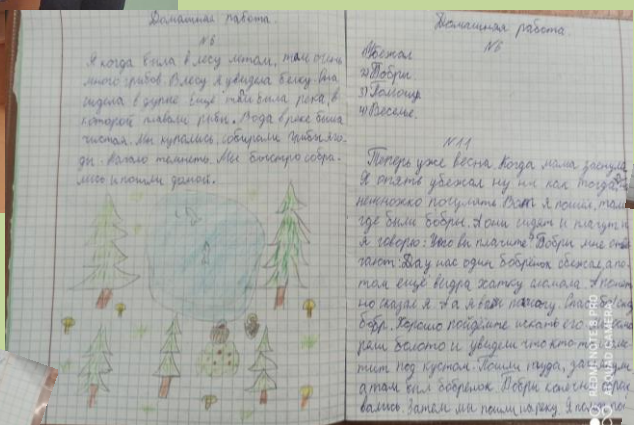 Домашняя работа.
№6
Я когда была в лесу летом, там очень
много грибов. В лесу я увидела белку. Она
сидела в дупле. Ещё там была река, в
которой плавали рыбы. Вода в реке была
чистая. Мы купались, собирали грибы, яго-
ды. Начало темнеть. Мы быстро собра-
лись и пошли домой.
Домашняя работа.
№6
1) Убежал
2) Бобры
3) Помощь
4) Веселье.
№11
Теперь уже весна. Когда мама заснула
Я опять убежал ну ни как тогда
немножко погулять Вот я пошёл, там
где были бобры. А они сидят и плачут и
я говорю: Чего вы плачите? Бобры мне отве
гают: Да у нас один бобрёнок сбежал, а по
том ещё выдра хатку сломала. А понят
но сказал я. А я вам помогу. Спасибо сказ
бобр. Хорошо пойдёмте искать его.
болото и увидели что кто-то
тит под кустом. Пошли туда,
а там был бобрёнок. Бобры конечно обрад
вались. Затем мы пошли на реку. Я
REDMI NOTE 8 PRO
AI QUAD CAMERA